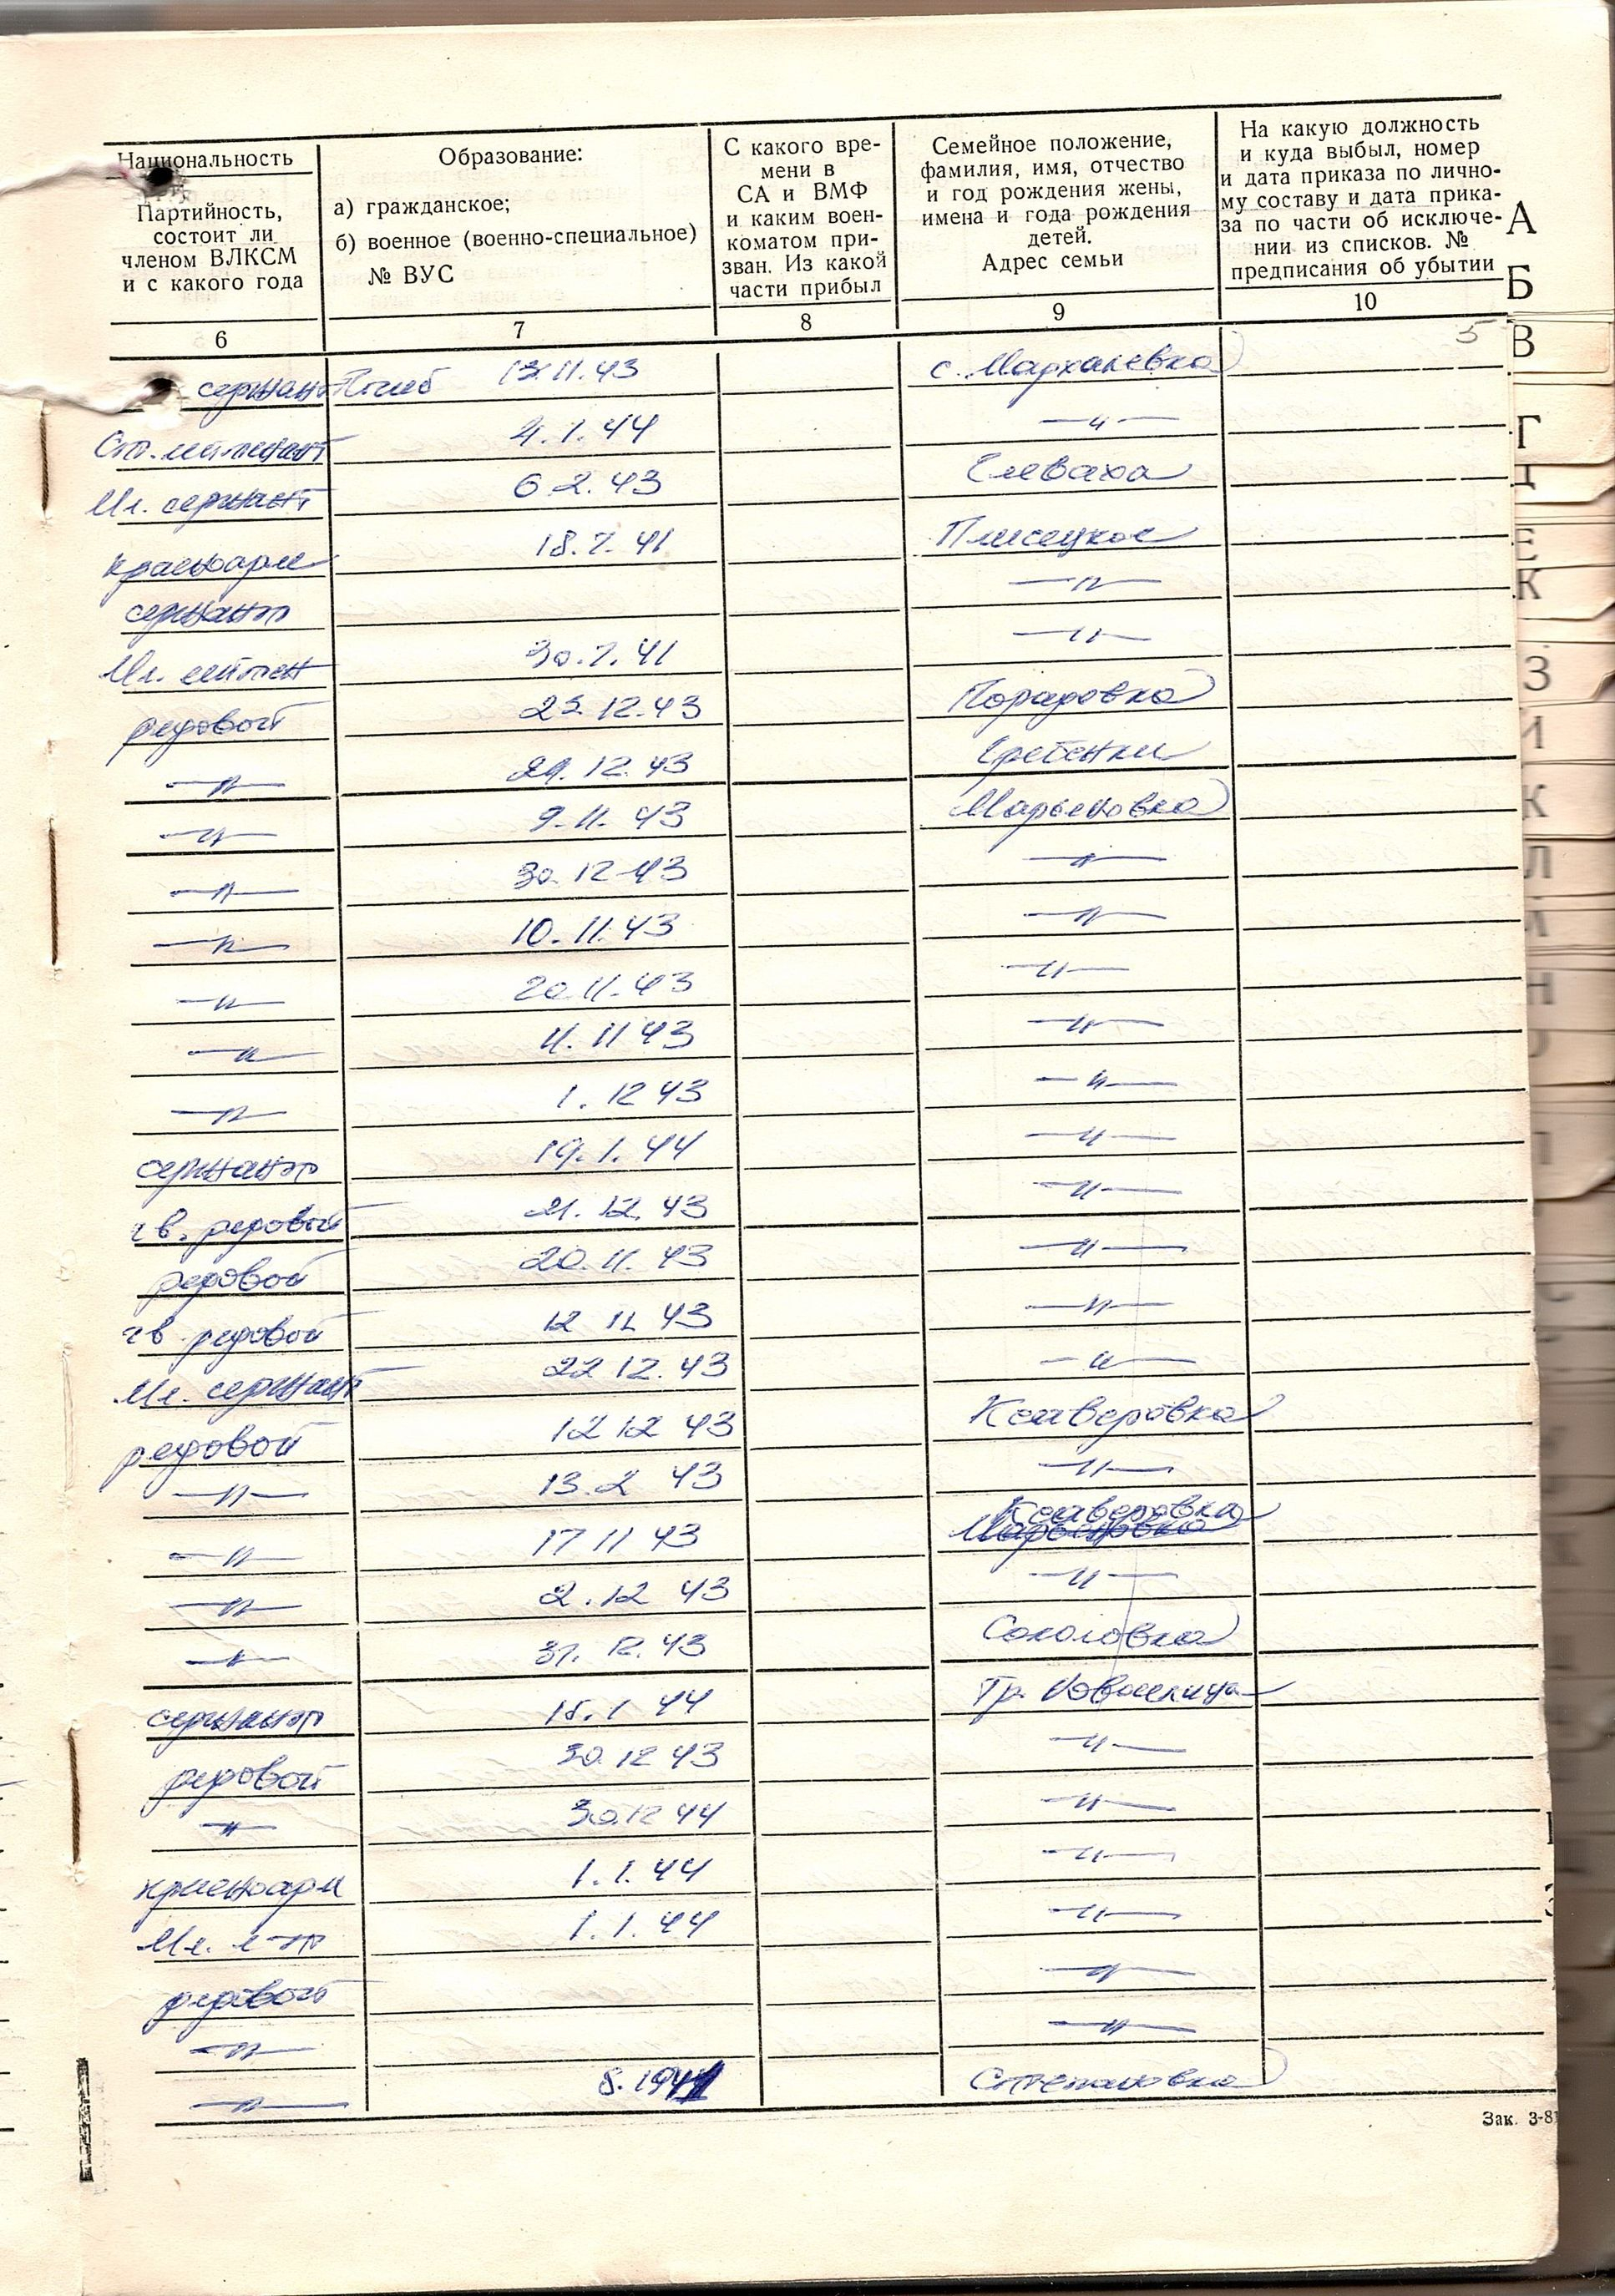 Национальность
Партийность,
состоит ли
членом ВЛКСМ
и с какого года
Образование:
а) гражданское;
б) военное (военно-специальное)
№ ВУС
С какого вре-
мени в
СА и ВМФ
и каким воен-
коматом при-
зван. Из какой
части прибыл
Семейное положение,
фамилия, имя, отчество
и год рождения жены,
имена и года рождения
детей.
Адрес семьи
На какую должность
и куда выбыл, номер
и дата приказа по лично-
му составу и дата прика-
за по части об исключе-
нии из списков. №
предписания об убытии
6 7 8 9 10
5
сержант Погиб 13.11.43 с. Мархалевка
Ст. лейтенант 4.1.44 —„—
Мл. сержант 6.2.43 Глеваха
красноарм 18.7.41 Плисецкое
сержант —„—
Мл. лейтен 30.7.41 —„—
рядовой 25.12.43 Порадовка
—„— 12.43 Гребенки
—„— 9.11.43 Марьяновка
—„— 30.12.43 —„—
—„— 10.11.43 —„—
—„— 20.11.43 —„—
—„— 11.11 43 —„—
—„— 1.12 43 —„—
сержант 19.1.44 —„—
гв. рядовой 21.12.43 —„—
рядовой 20.11.43 —„—
гв рядовой 12 11 43 —„—
Мл. сержант 22 12.43 —„—
рядовой 12 12 43 Ксаверовка
—„— 13.2 43 —„—
—„— 17 11 43 Ксаверовка
Марьяновка
—„— 2.12 43 —„—
—„— 31.12.43 Соколовка
сержант 15.1 44 Гр. Новоселица
рядовой 30.12 43 —„—
—„— 30.12 44 —„—
красноарм 1.1.44 —„—
Мл. л-т 1.1.44 —„—
рядовой —„—
—„— —„—
—„— 8.1941 Степановка
Зак. 3-81
А
Б
В
Г
Е
К
З
И
К
Л
М
Н
О
П